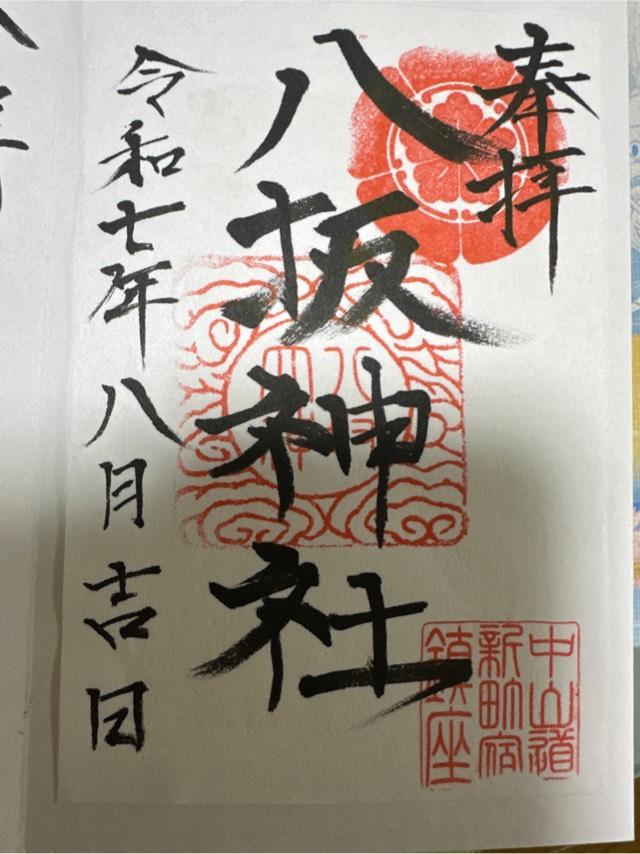 奉拝
八坂神社
令和七年八月吉日
中山道
新町宿
鎮座